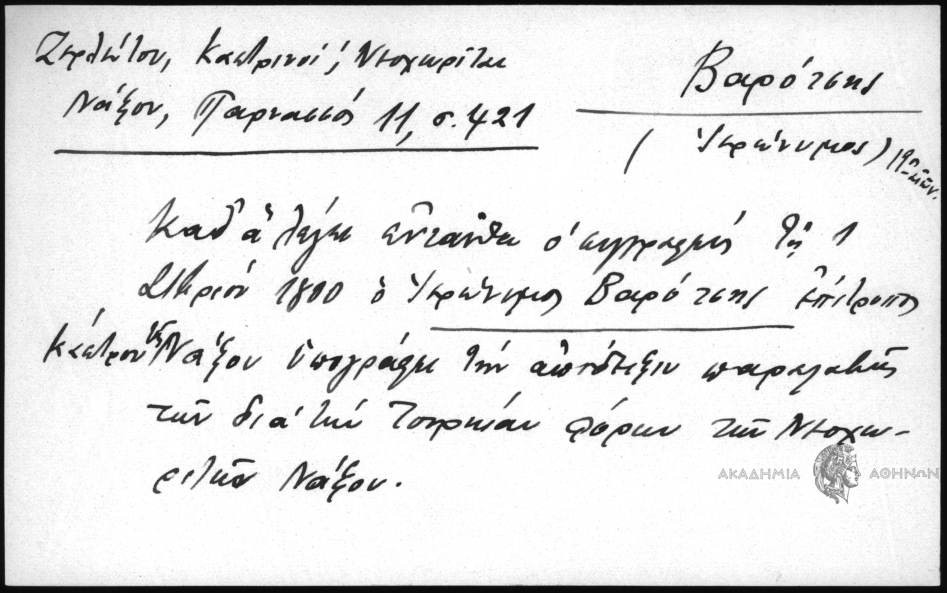 Ζερλέντου, Καστρινοί, Νεοχωρίται
Νάξου, Παρνασσός 11, σ. 421
Βαρότσης
(Ἱερώνυμος) 19ος αἰών.
Καθ' ἃ λέγει ἐνταῦθα ὁ συγγραφεύς τῇ 1
1800 ὁ Ἱερώνυμος Βαρότσης ἐπίτροπος
Κάστρου τῆς Νάξου ὑπογράφει τήν ἀπόδειξιν παραλαβῆς
τῶν διά τήν Τουρκίαν φόρων τῶν Νεοχω-
ριτῶν Νάξου.
ΑΚΑΔΗΜΙΑ ΑΘΗΝΩΝ